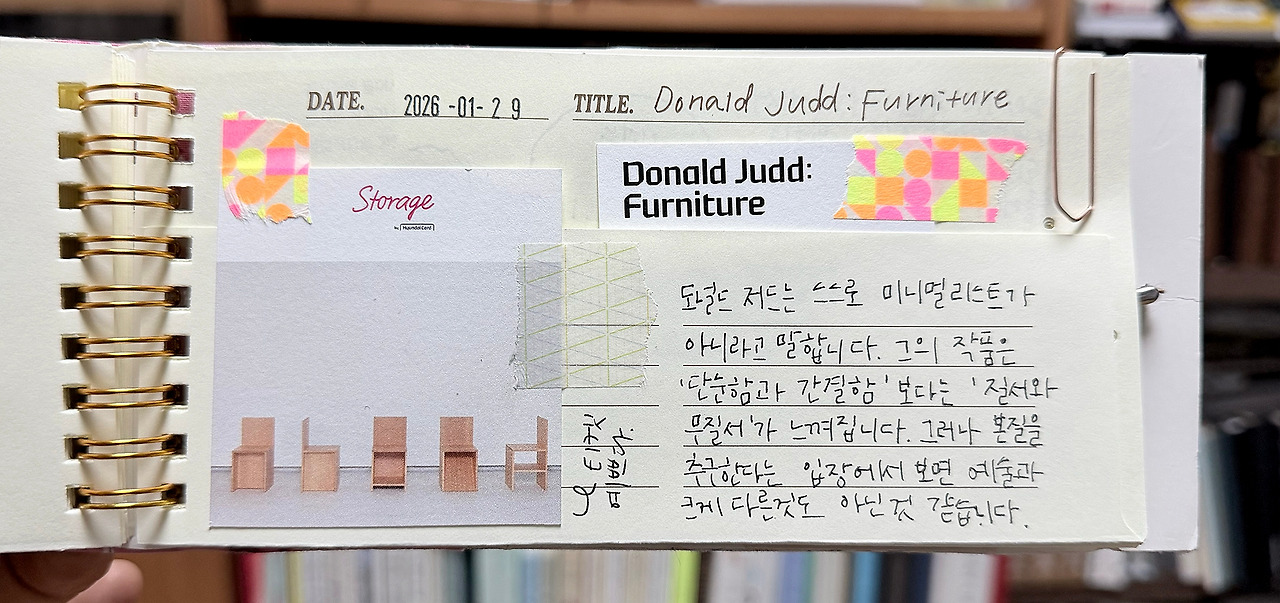 DATE. 2026-01-29
TITLE. Donald Judd: Furniture
Storage
by Hyundai Card
Donald Judd:
Furniture
도널드 저드는 스스로 미니멀리스트가
아니라고 말합니다. 그의 작품은
'단순함과 간결함' 보다는 '질서와
무질서'가 느껴집니다. 그러나 본질을
추구한다는 입장에서 보면 예술과
크게 다른것도 아닌 것 같습니다.
예쁘다.